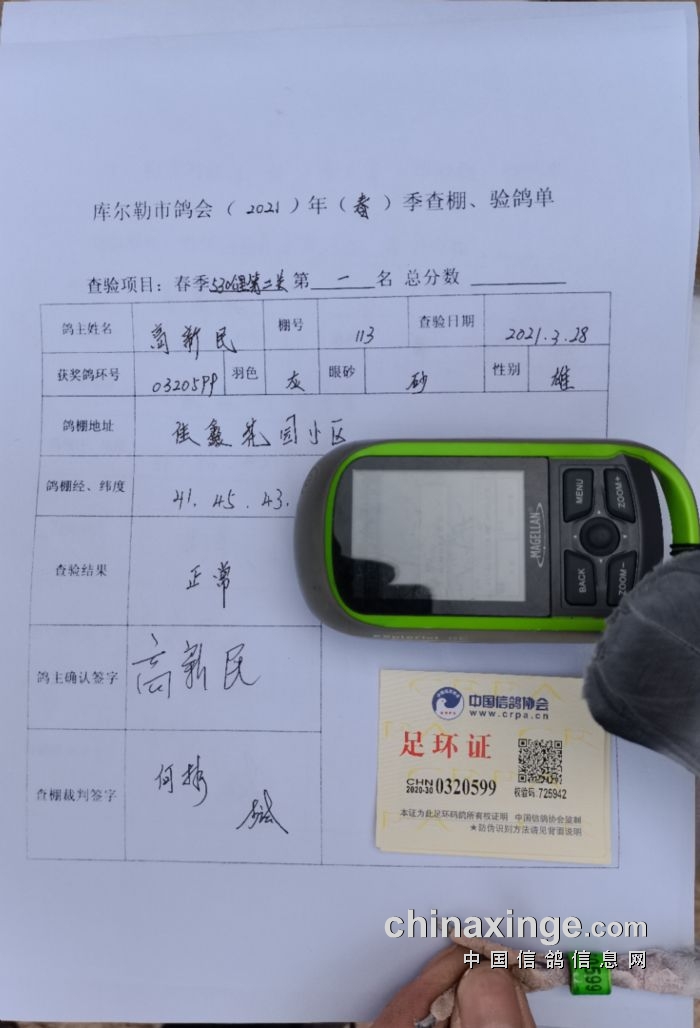 库尔勒市鸽会（2021）年（春）季查棚、验鸽单
查验项目：春季530公里第二关 第一名 总分数
鸽主姓名 高新民 棚号 113 查验日期 2021.3.28
获奖鸽环号 0320599 羽色 灰 眼砂 砂 性别 雄
鸽棚地址 佳鑫花园小区
鸽棚经、纬度 41.45.43.
查验结果 正常
鸽主确认签字 高新民
查棚裁判签字 何
MAGELLAN
MENU
ZOOM+
BACK
ZOOM-
eXplorist GC
中国信鸽协会
www.crpa.cn
足环证
CHN
2020-30 0320599
校验码: 725942
本证为此足环码鸽所有权证明 中国信鸽协会监制
★防伪识别方法请见背面说明
chinaxinge.com
中国信鸽信息网
599